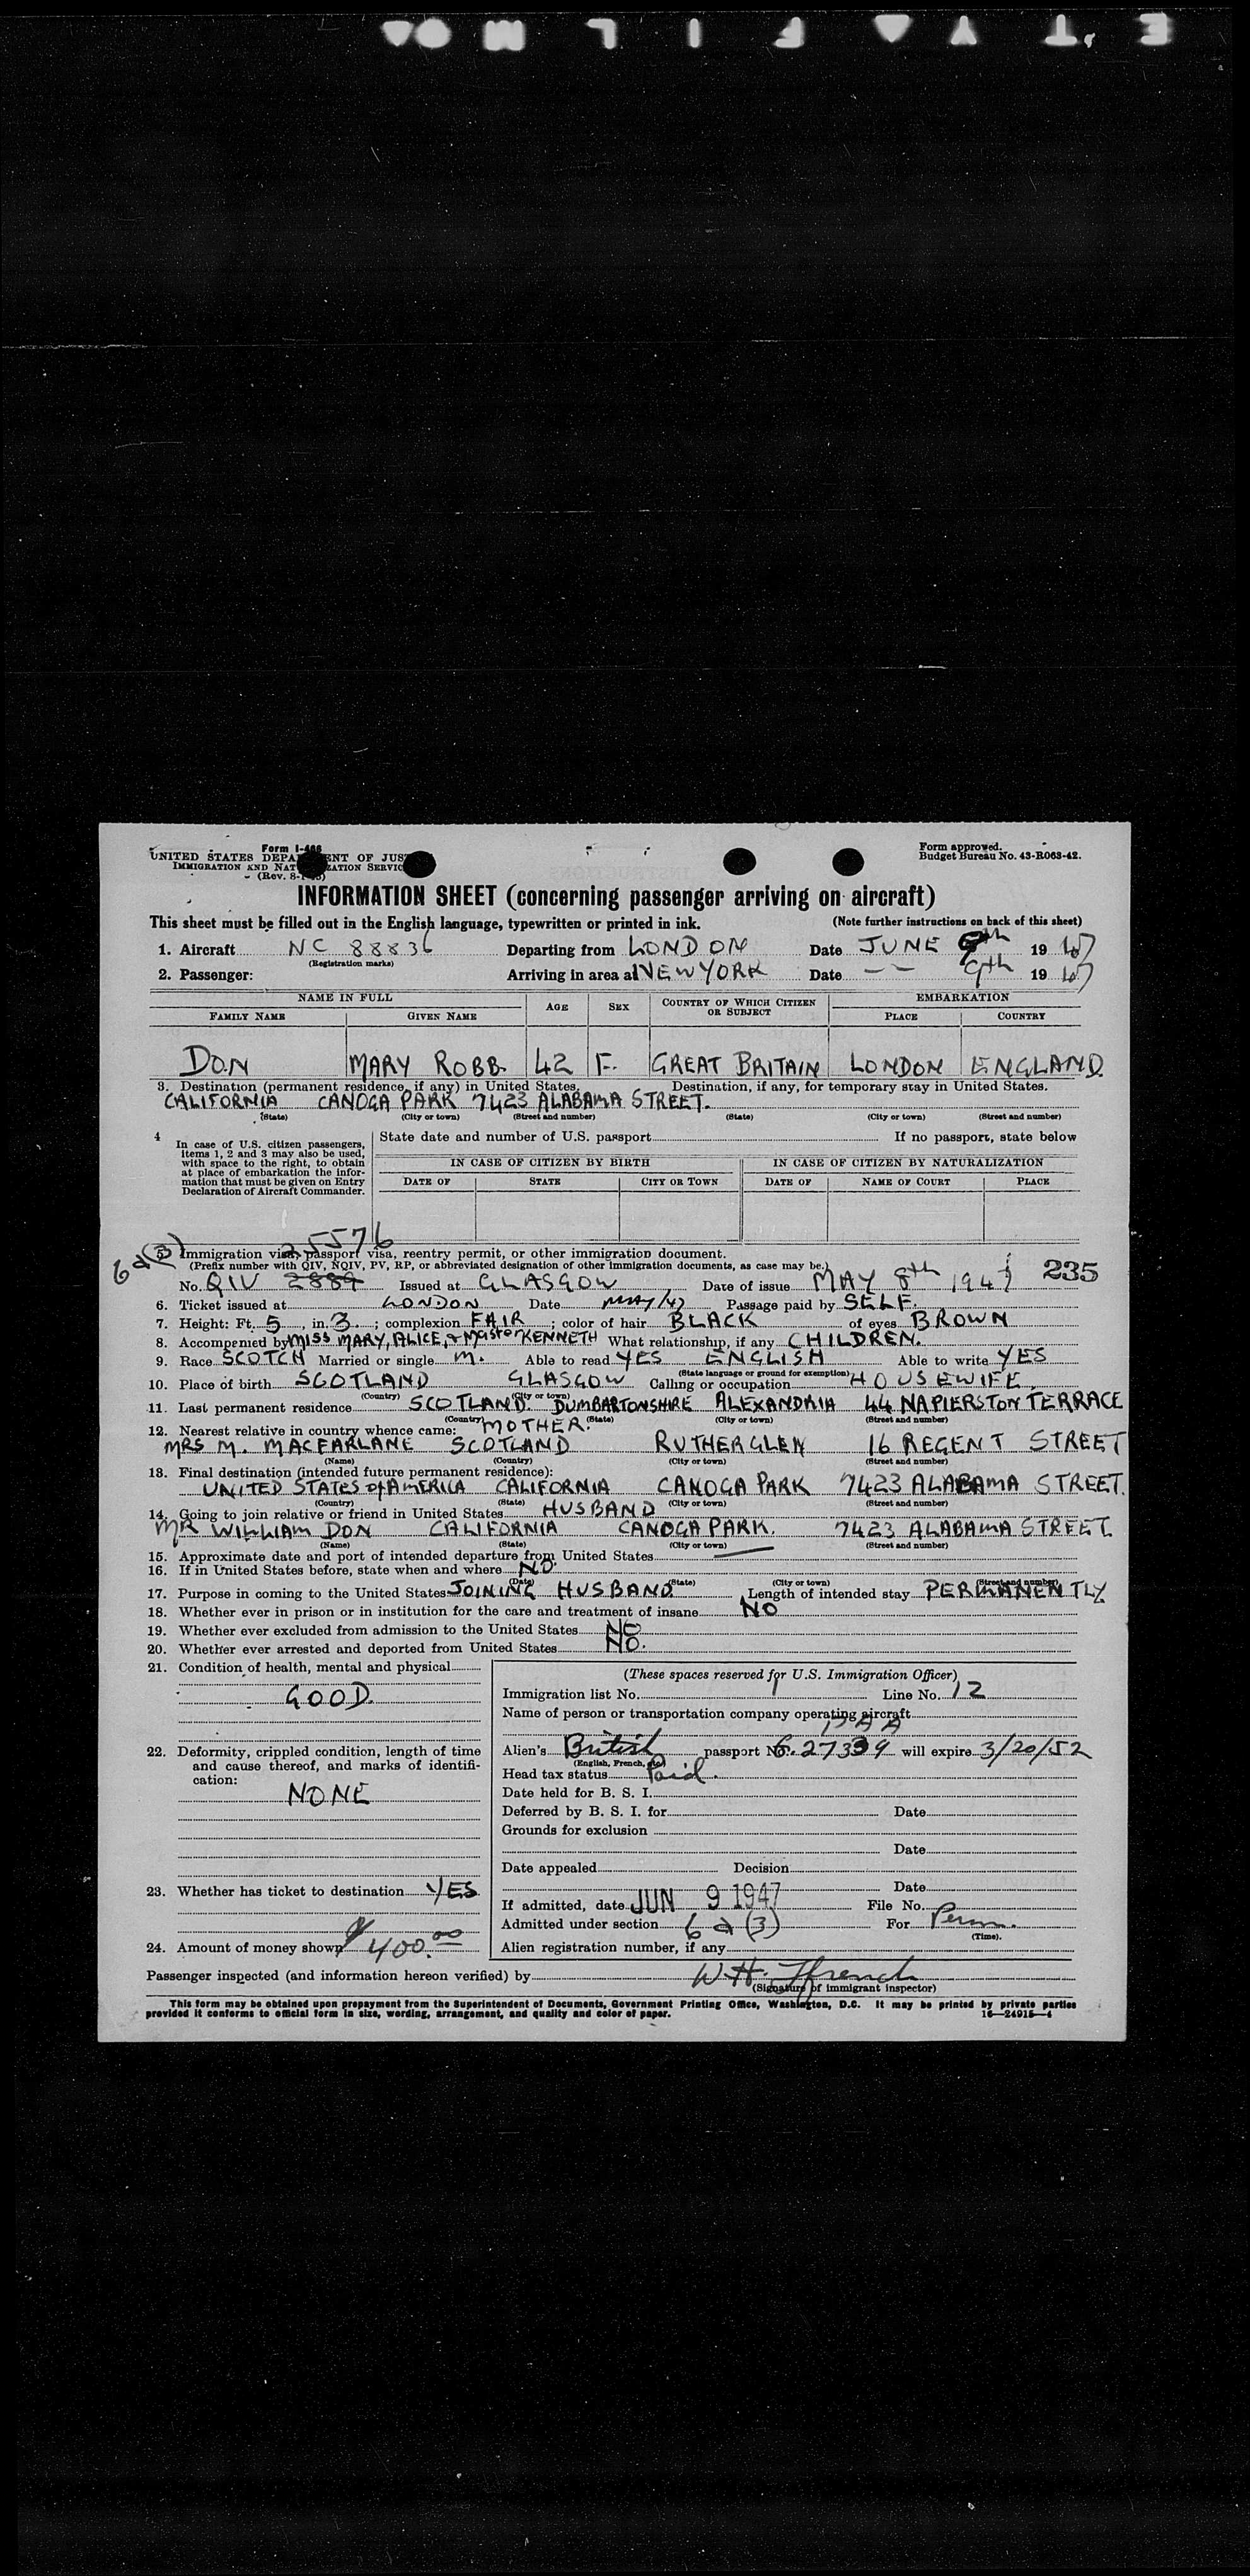 SAFETY FILM
Form I-466
UNITED STATES DEPARTMENT OF JUSTICE
IMMIGRATION AND NATURALIZATION SERVICE
(Rev. 8-1-45)
Form approved.
Budget Bureau No. 43-R063-42.
INFORMATION SHEET (concerning passenger arriving on aircraft)
This sheet must be filled out in the English language, typewritten or printed in ink. (Note further instructions on back of this sheet)
1. Aircraft NC 88836 Departing from LONDON Date JUNE 19 47
(Registration marks)
2. Passenger: Arriving in area at NEW YORK Date -- 9th 19 47
NAME IN FULL AGE SEX COUNTRY OF WHICH CITIZEN OR SUBJECT EMBARKATION
FAMILY NAME GIVEN NAME PLACE COUNTRY
DON MARY ROBB 42 F. GREAT BRITAIN LONDON ENGLAND
3. Destination (permanent residence, if any) in United States. Destination, if any, for temporary stay in United States.
CALIFORNIA CANOGA PARK 7423 ALABAMA STREET.
(State) (City or town) (Street and number) (State) (City or town) (Street and number)
4 In case of U.S. citizen passengers, items 1, 2 and 3 may also be used, with space to the right, to obtain at place of embarkation the information that must be given on Entry Declaration of Aircraft Commander.
State date and number of U.S. passport If no passport, state below
IN CASE OF CITIZEN BY BIRTH IN CASE OF CITIZEN BY NATURALIZATION
DATE OF STATE CITY OR TOWN DATE OF NAME OF COURT PLACE
25576
6a(3)
5. Immigration visa, passport visa, reentry permit, or other immigration document.
(Prefix number with QIV, NQIV, PV, RP, or abbreviated designation of other immigration documents, as case may be.)
235
No. QIV 2889 Issued at GLASGOW Date of issue MAY 8th 1947
6. Ticket issued at LONDON Date MAY/47 Passage paid by SELF.
7. Height: Ft. 5, in. 3.; complexion FAIR; color of hair BLACK of eyes BROWN
8. Accompanied by MISS MARY, ALICE, & Master KENNETH What relationship, if any CHILDREN.
9. Race SCOTCH Married or single M. Able to read YES ENGLISH Able to write YES
(State language or ground for exemption)
10. Place of birth SCOTLAND GLASGOW Calling or occupation HOUSEWIFE
(Country) (City or town)
11. Last permanent residence SCOTLAND. DUMBARTONSHIRE ALEXANDRIA 44 NAPIERSTON TERRACE
(Country) (State) (City or town) (Street and number)
12. Nearest relative in country whence came: MOTHER.
MRS M. MACFARLANE SCOTLAND RUTHERGLEN 16 REGENT STREET
(Name) (Country) (City or town) (Street and number)
13. Final destination (intended future permanent residence):
UNITED STATES of AMERICA CALIFORNIA CANOGA PARK 7423 ALABAMA STREET.
(Country) (State) (City or town) (Street and number)
14. Going to join relative or friend in United States HUSBAND
MR WILLIAM DON CALIFORNIA CANOGA PARK. 7423 ALABAMA STREET.
(Name) (State) (City or town) (Street and number)
15. Approximate date and port of intended departure from United States
16. If in United States before, state when and where NO.
(Date) (State) (City or town) (Street and number)
17. Purpose in coming to the United States JOINING HUSBAND Length of intended stay PERMANENTLY
18. Whether ever in prison or in institution for the care and treatment of insane NO
19. Whether ever excluded from admission to the United States NO
20. Whether ever arrested and deported from United States NO.
21. Condition of health, mental and physical
GOOD.
22. Deformity, crippled condition, length of time and cause thereof, and marks of identification:
NONE
23. Whether has ticket to destination YES
24. Amount of money shown $400.00
(These spaces reserved for U.S. Immigration Officer)
Immigration list No. 1 Line No. 12
Name of person or transportation company operating aircraft
PAA
Alien's British passport No. 27339 will expire 3/20/52
(English, French, etc.)
Head tax status Paid.
Date held for B. S. I.
Deferred by B. S. I. for Date
Grounds for exclusion
Date
Date appealed Decision
Date
If admitted, date JUN 9 1947 File No.
Admitted under section 6 a (3) For Perm.
(Time).
Alien registration number, if any
Passenger inspected (and information hereon verified) by W.H. Ffrench
(Signature of immigrant inspector)
This form may be obtained upon prepayment from the Superintendent of Documents, Government Printing Office, Washington, D.C. It may be printed by private parties
provided it conforms to official form in size, wording, arrangement, and quality and color of paper. 16—24915-1